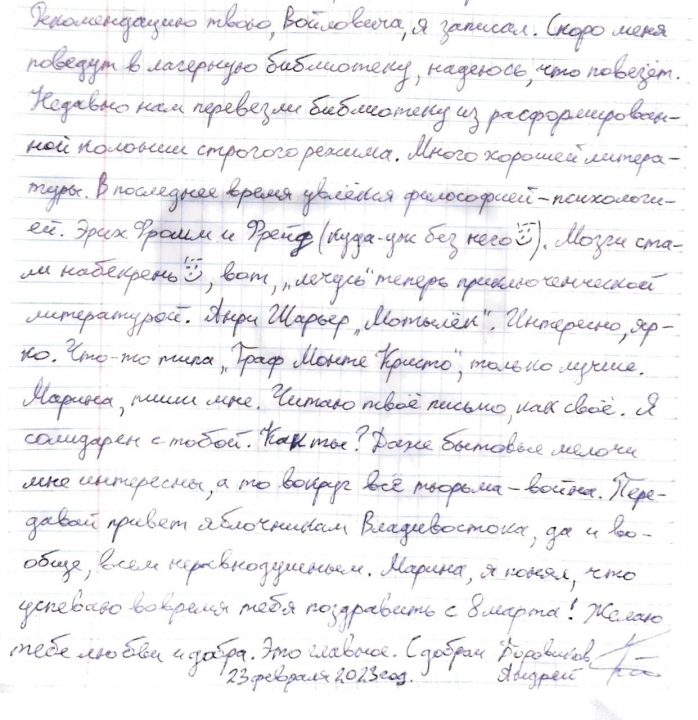 Рекомендацию твою, Войновича, я записал. Скоро меня
поведут в лагерную библиотеку, надеюсь, что повезёт.
Недавно нам перевезли библиотеку из расформирован-
ной колонии строгого режима. Много хорошей литера-
туры. В последнее время увлёкся философией-психологи-
ей. Эрих Фромм и Фрейд (куда-уж без него☺). Мозги ста-
ли набекрень☺, вот, „лечусь" теперь приключенческой
литературой. Анри Шарьер „Мотылёк". Интересно, яр-
ко. Что-то типа „Граф Монте Кристо", только лучше.
Марина, пиши мне. Читаю твоё письмо, как своё. Я
солидарен с тобой. Как ты? Даже бытовые мелочи
мне интересны, а то вокруг всё тюрьма – война. Пере-
давай привет яблочникам Владивостока, да и во-
обще, всем неравнодушным. Марина, я понял, что
успеваю вовремя тебя поздравить с 8 марта! Желаю
тебе любви и добра. Это главное. С добром Боровиков
23 февраля 2023 год. Андрей